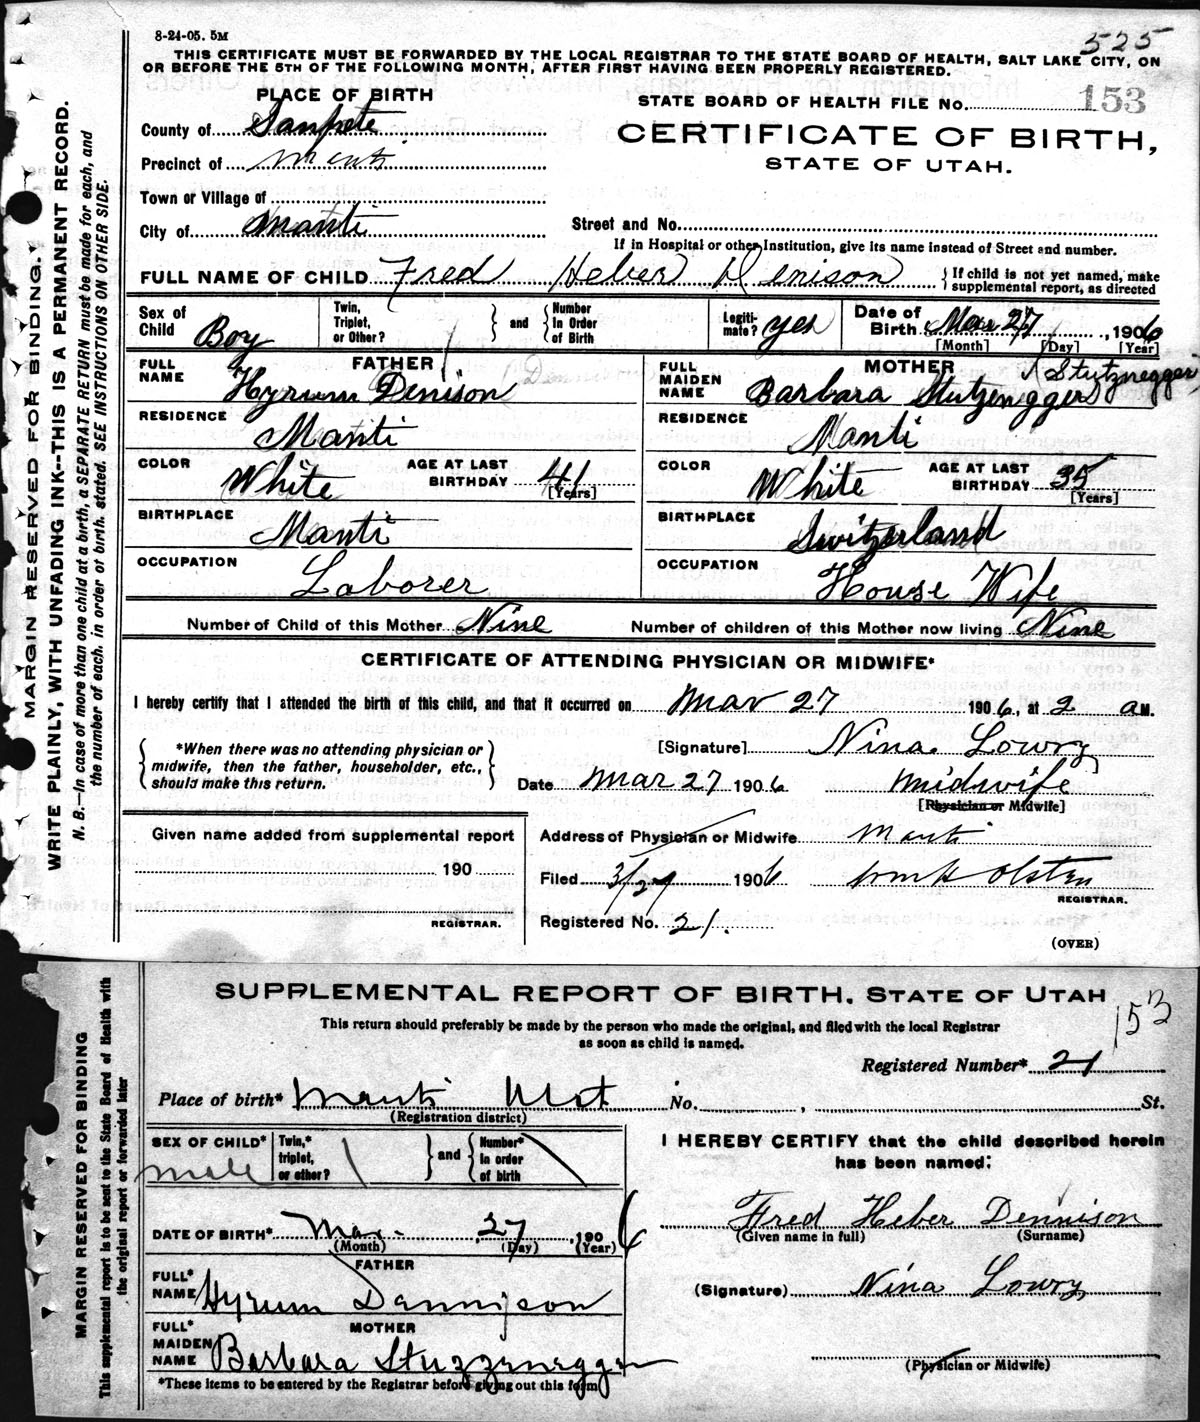 8-24-05. 5M
525
THIS CERTIFICATE MUST BE FORWARDED BY THE LOCAL REGISTRAR TO THE STATE BOARD OF HEALTH, SALT LAKE CITY, ON
OR BEFORE THE 5TH OF THE FOLLOWING MONTH, AFTER FIRST HAVING BEEN PROPERLY REGISTERED.
PLACE OF BIRTH
STATE BOARD OF HEALTH FILE No. 153
County of Sanpete
CERTIFICATE OF BIRTH,
STATE OF UTAH.
Precinct of Manti
Town or Village of
City of Manti
Street and No.
If in Hospital or other Institution, give its name instead of Street and number.
FULL NAME OF CHILD Fred Heber Denison { If child is not yet named, make supplemental report, as directed
Sex of Child Boy
Twin, Triplet, or Other? } and { Number In Order of Birth
Legiti-mate? yes
Date of Birth Mar 27, 1906
[Month] [Day] [Year]
FATHER
FULL NAME Hyrum Denison
RESIDENCE Manti
COLOR White AGE AT LAST BIRTHDAY 41 [Years]
BIRTHPLACE Manti
OCCUPATION Laborer
MOTHER Stutznegger
FULL MAIDEN NAME Barbara Stutzenegger
RESIDENCE Manti
COLOR White AGE AT LAST BIRTHDAY 35 [Years]
BIRTHPLACE Switzerland
OCCUPATION House Wife
Number of Child of this Mother Nine Number of children of this Mother now living Nine
CERTIFICATE OF ATTENDING PHYSICIAN OR MIDWIFE*
I hereby certify that I attended the birth of this child, and that it occurred on Mar 27 1906, at 2 a M.
{ *When there was no attending physician or
midwife, then the father, householder, etc.,
should make this return. }
[Signature] Nina Lowry
Date Mar 27 1906 Midwife
[Physician or Midwife]
Given name added from supplemental report
190
REGISTRAR.
Address of Physician or Midwife Manti
Filed 3/29 1906 Wm H Olsten
REGISTRAR.
Registered No. 21.
(OVER)
MARGIN RESERVED FOR BINDING.
WRITE PLAINLY, WITH UNFADING INK--THIS IS A PERMANENT RECORD.
N. B.—In case of more than one child at a birth, a SEPARATE RETURN must be made for each, and
the number of each, in order of birth, stated. SEE INSTRUCTIONS ON OTHER SIDE.
SUPPLEMENTAL REPORT OF BIRTH, STATE OF UTAH
153
This return should preferably be made by the person who made the original, and filed with the local Registrar
as soon as child is named.
Registered Number* 21
Place of birth* Manti No. , St.
(Registration district)
SEX OF CHILD* Male
Twin,* triplet, or other? } and { Number* In order of birth
DATE OF BIRTH* Mar. 27, 1906
(Month) (Day) (Year)
FATHER
FULL* NAME Hyrum Dennison
MOTHER
FULL* MAIDEN NAME Barbara Stuzzenegger
*These items to be entered by the Registrar before giving out this form
I HEREBY CERTIFY that the child described herein
has been named:
Fred Heber Dennison
(Given name in full) (Surname)
(Signature) Nina Lowry
(Physician or Midwife)
MARGIN RESERVED FOR BINDING
This supplemental report is to be sent to the State Board of Health with
the original report or forwarded later